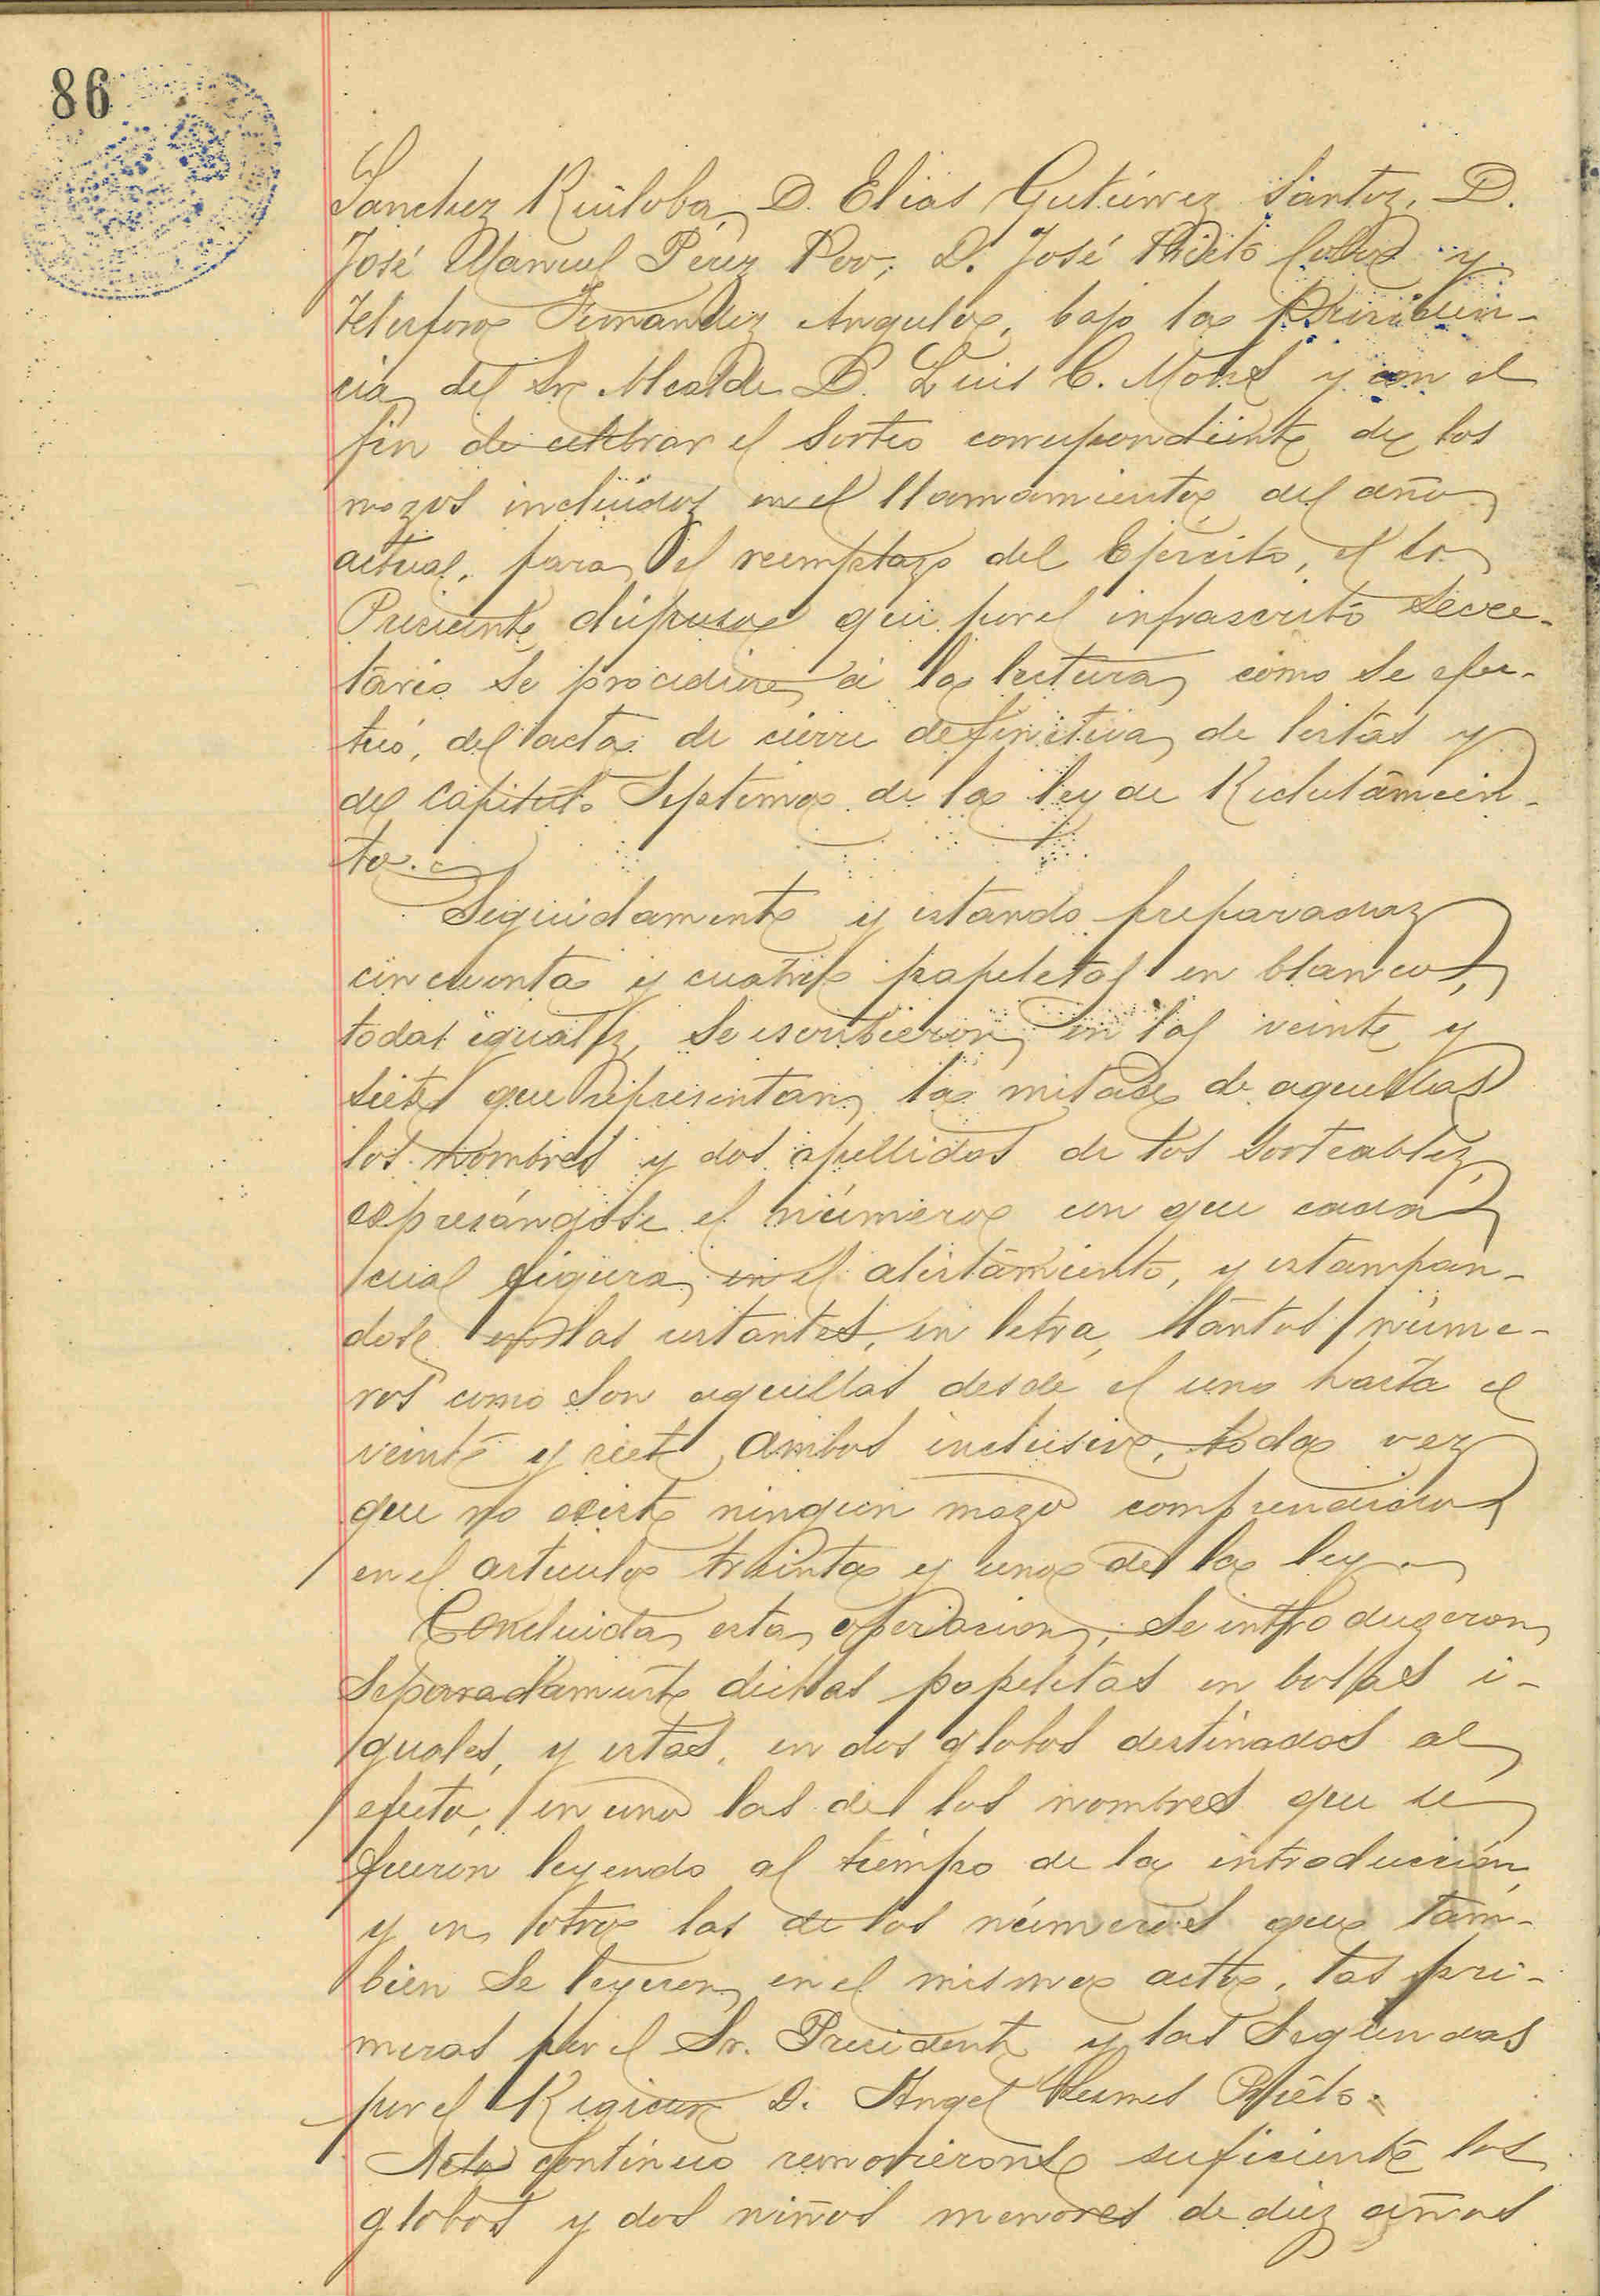 86
Sanchez Ruiloba, D. Elias Gutiérrez Santos, D.
José Manuel Pérez Rov, D. José Prieto y
Telesforo Fernandez Angulo, bajo la Presiden-
cia del Sr. Alcalde D. Luis C. y con el
fin de celebrar el Sorteo correspondiente de los
mozos incluidos en el llamamiento del año
actual, para el reemplazo del Ejército, el Sr.
Presidente dispuso que por el infrascrito Secre-
tario se procediera á la lectura, como se efec-
tuó, del acta de cierre definitiva de listas y
del Capítulo Septimo de la ley de Reclutamien-
to.
Seguidamente y estando preparadas
cincuenta y cuatro papeletas en blanco,
todas iguales, se escribieron en las veinte y
siete que representan la mitad de aquellas
los nombres y dos apellidos de los sorteables,
espresándose el número con que cada
cual figura en el alistamiento, y estampan-
dose en las restantes, en letra, tantos núme-
ros como son aquellas desde el uno hasta el
veinte y siete, ambos inclusive, toda vez
que no existe ningun mozo comprendido
en el articulo treinta y uno de la ley.
Concluida esta operacion, se introdugeron
separadamente dichas papeletas en bolas i-
guales, y estas, en dos globos destinados al
efecto, en uno las de los nombres que se
fueron leyendo al tiempo de la introducción,
y en otro las de los números que tam-
bien se leyeron en el mismo acto, las pri-
meras por el Sr. Presidente y las segundas
por el Regidor D. Angel
Acto continuo removieronse suficiente los
globos y dos niños menores de diez años